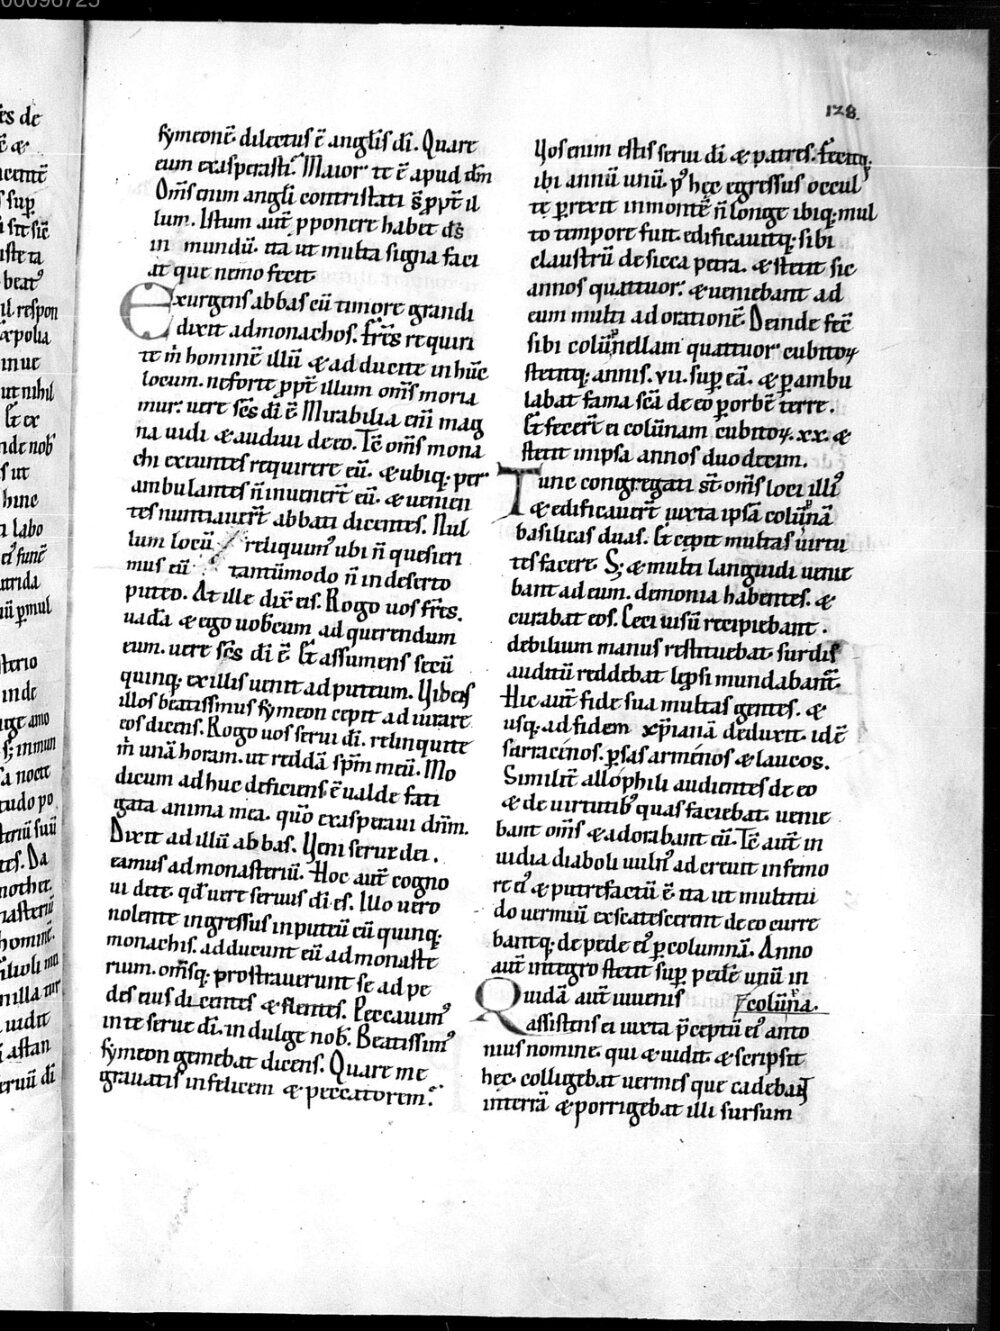 128.
symeonē. dilectus ē anglīs dī. Quare
eum exasperasti? Maior te ē apud dm̄
Om̄s enim angli contristati s̄ ppt̄ il
lum. Istum aut̄ pponere habet ds̄
in mundū. ita ut multa signa faci
at que nemo fecit
Exurgens abbas cū timore grandi
dixit ad monachos. fr̄s requiri
te m̄ hominē illū & adducite in hūc
locum. ne forte ppt̄ illum om̄s moria
mur. uere scs̄ dī ē Mirabilia eni mag
na uidi & audiui de eo. Tē om̄s mona
chi exeuntes requirere eū. & ubiq; per
ambulantes n̄ inuenert̄ eū. & uenien
tes nuntiauert̄ abbati dicentes. Nul
lum locū reliquim' ubi n̄ quesieri
mus eū tantūmodo n̄ in deserto
puteo. At ille dix̄ eis. Rogo uos fr̄s.
uadā & ego uobcum ad querendum
eum. uere scs̄ dī ē. Et assumens secū
quinq; ex illis uenit ad puteum. Videns
illos beatissimus symeon cepit adiurare
eos dicens. Rogo uos serui dī. relinquite
m̄ unā horam. ut reddā spm̄ meū. Mo
dicum adhuc deficiens ē ualde fati
gata anima mea. quō exasperaui dnm̄.
Dixit ad illū abbas. Veni serue dei.
eamus ad monasteriū. Hoc aut̄ cogno
ui de te. qd' uere seruus dī es. Illo uero
nolente ingressus in puteū cū quinq;
monachis. adducunt eū ad monaste
rium. om̄sq; prostrauerunt se ad pe
des eius dicentes & flentes. Peccauim'
in te serue dī. indulge nob̄. Beatissim'
symeon gemebat dicens. Quare me
grauatis infelicem & peccatorem?
Vos enim estis serui dī & patres. fecitq;
ibi annū unū. p' hec egressus occul
te prexit in monte n̄ longe ibiq; mul
to tempore fuit. edificauitq; sibi
claustrū de sicca petra. & stetit sic
annos quattuor. & ueniebant ad
eum multi ad orationē. Deinde fec̄
sibi colūnellam quattuor cubitoꝝ
stetitq; annis. vii. sup eā. & pambu
labat fama scā de eo p orbē terre.
Et fecert̄ ei colūnam cubitoꝝ. xx. &
stetit in ipsa annos duodecim.
Tunc congregati st̄ om̄s loci illi'
& edificauert̄ iuxta ipsā colūnā
basilicas duas. Et cepit multas uirtu
tes facere. S; & multi languidi uenie
bant ad eum. demonia habentes. &
curabat eos. Ceci uisū recipiebant.
debilium manus restituebat. surdis
auditū reddebat lepsi mundabant̄.
Hic aut̄ fide sua multas gentes. &
usq; ad fidem xp̄ianā deduxit. id ē
sarracenos. psas armenos & laucos.
Similit̄ allophili audientes de eo
& de uirtutib' quas faciebat. uenie
bant om̄s & adorabant eū. Tē aut̄ in
uidia diaboli uuln' adcreuit in femo
re ei' & putrefactū ē. ita ut multitu
do uermiū exscatescerent de eo curre
bantq; de pede ei' p columnā. Anno
aut̄ integro stetit sup pedē unū in
Quidā aut̄ iuuenis colūna.
assistens ei iuxta pceptū ei' anto
nius nomine. qui & uidit & scripsit
hec. colligebat uermes que cadebant
in terrā & porrigebat illi sursum